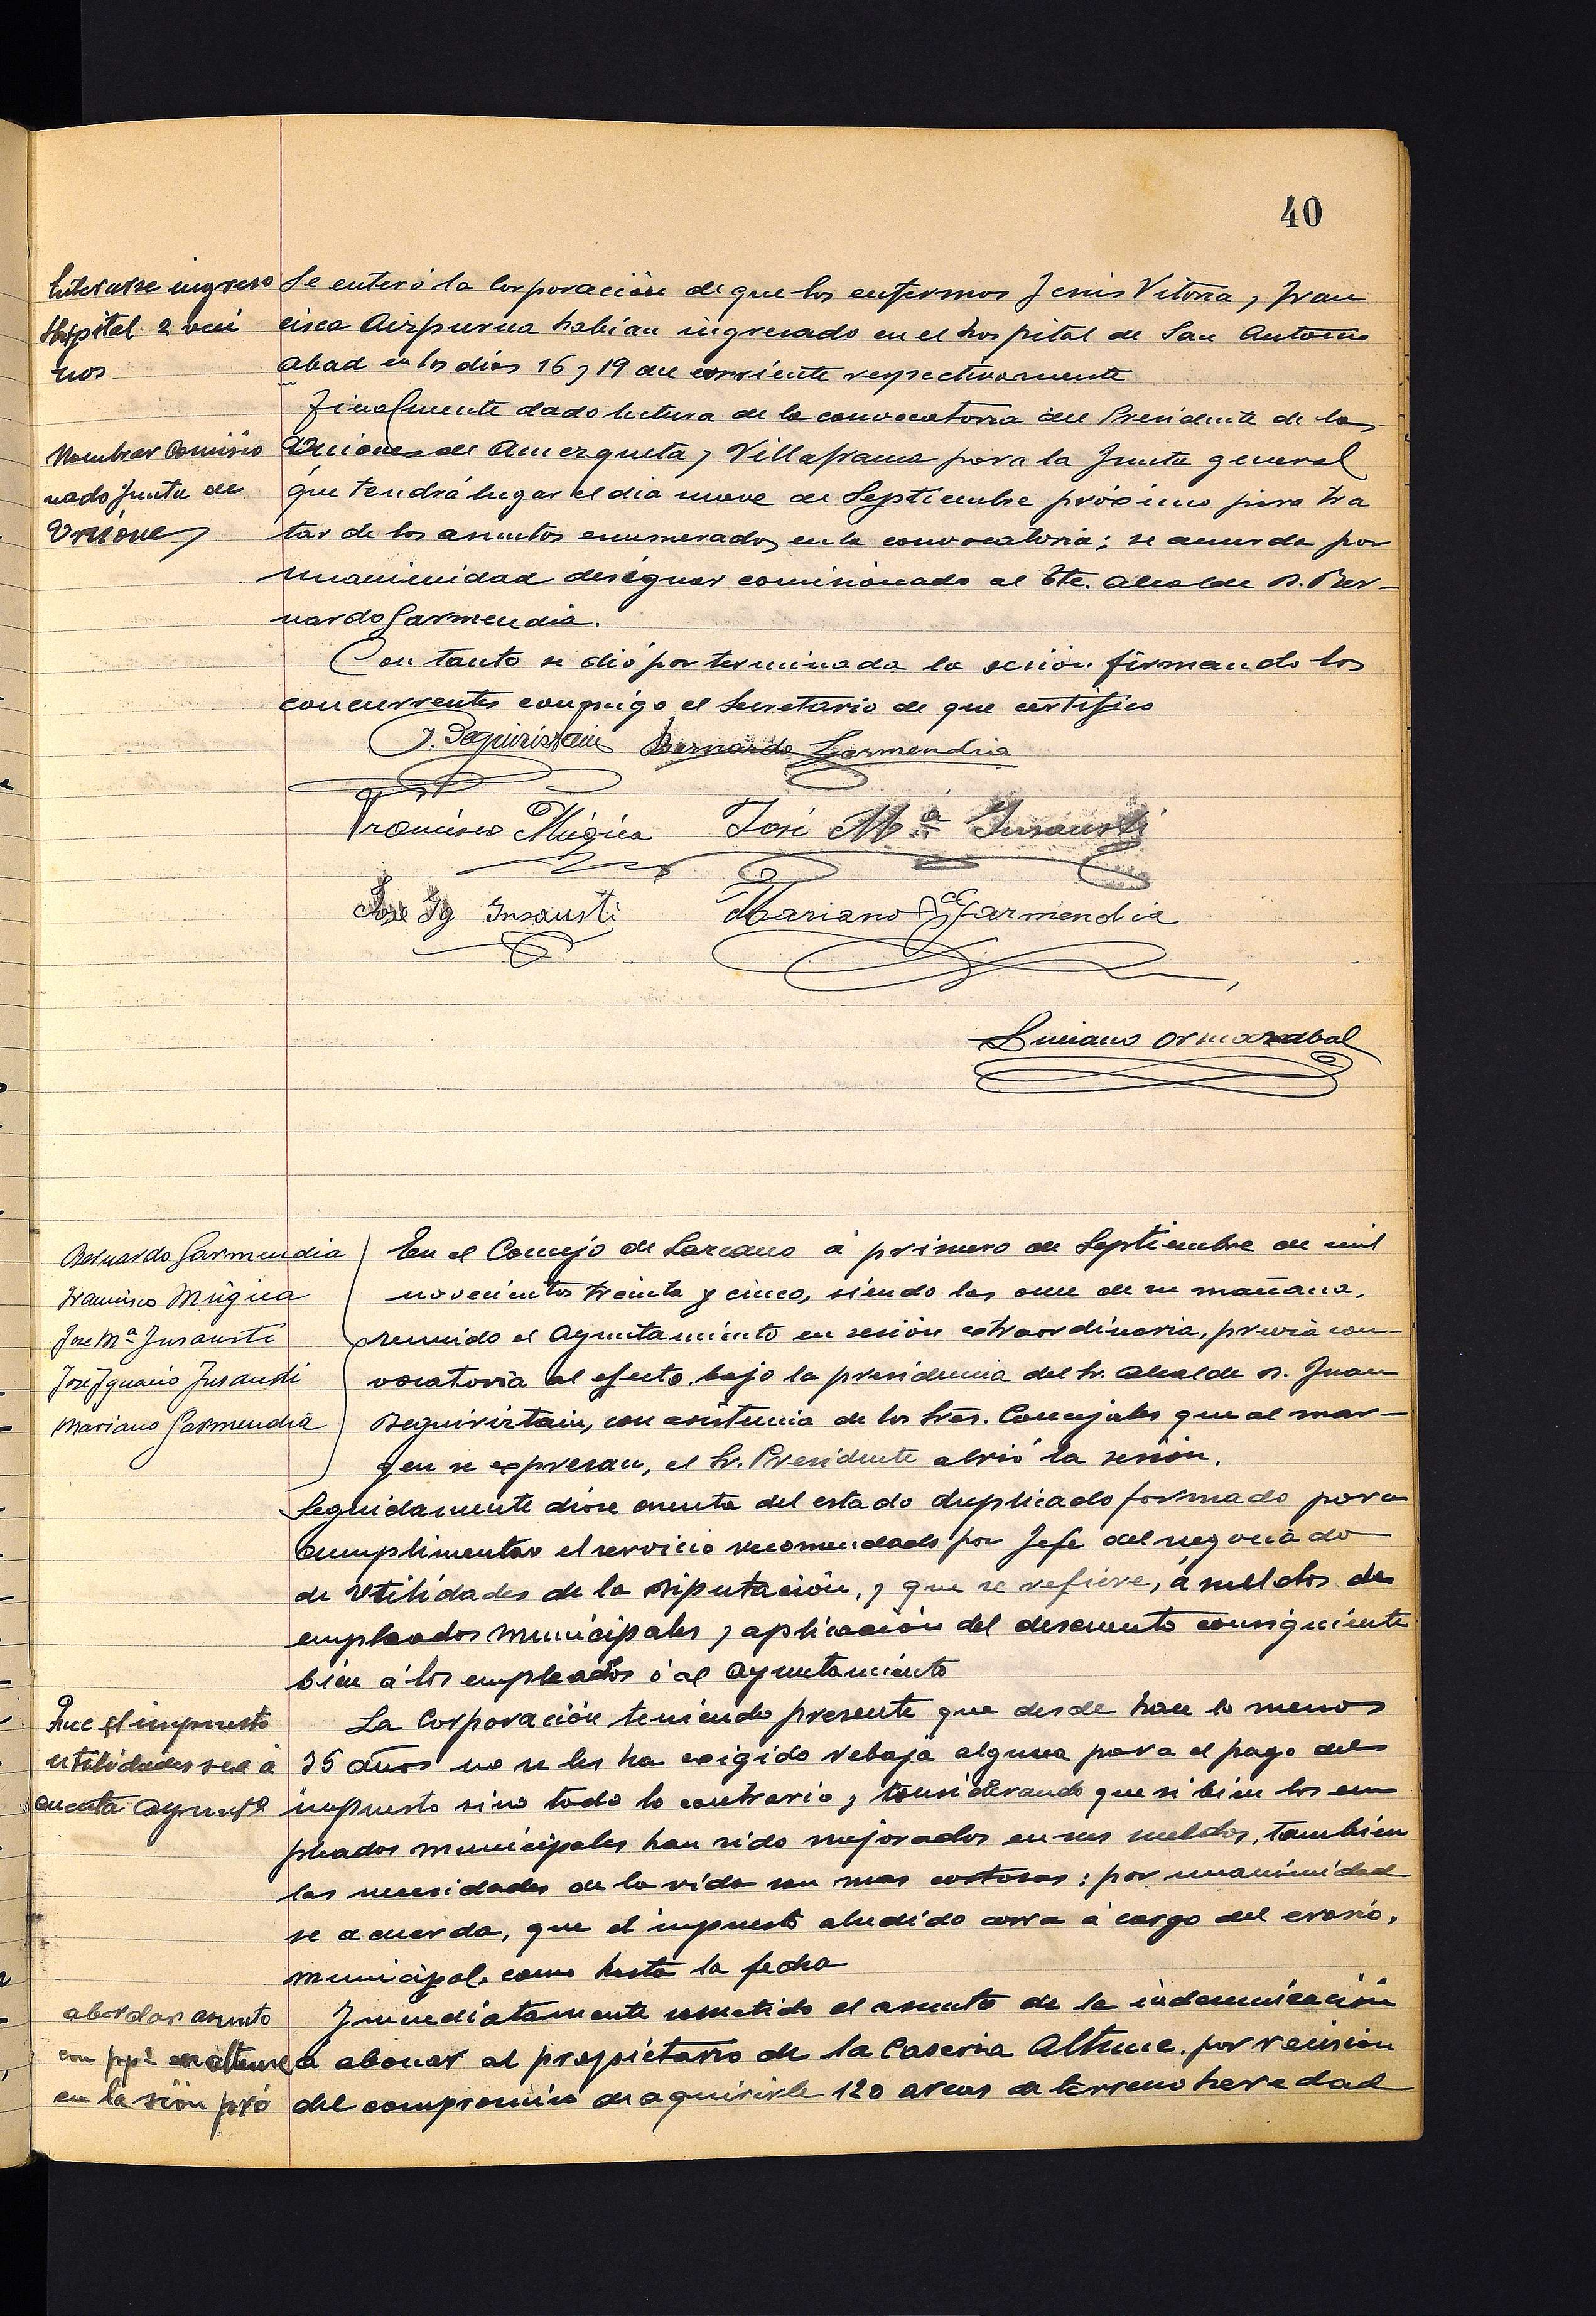 40
Enterarse ingreso
Hospital 2 veci
nos
Se enteró la Corporación de que los enfermos Jesús Vitoria, y Fran
cisca Aizpurua habían ingresado en el hospital de San Antonio
Abad en los días 16 y 19 del corriente respectivamente
Nombrar Comisio
nado Junta de
Uniones
Finalmente dado lectura de la convocatoria del Presidente de las
Uniones de Amezqueta, y Villafranca para la Junta general
que tendrá lugar el día nueve de Septiembre próximo para tra
tar de los asuntos enumerados en la convocatoria; se acuerda por
unanimidad designar comisionado al Tte. Alcalde D. Ber-
nardo Garmendia.
Con tanto se dió por terminada la sesión firmando los
concurrentes conmigo el Secretario de que certifico
J. Beguiristain Bernardo Garmendia
Francisco Múgica José Mª Insausti
Jose Ig Insausti Mariano Garmendia
Luciano Ormazabal
Bernardo Garmendia
Francisco Múgica
Jose Mª Insausti
Jose Ignacio Insausti
Mariano Garmendia
En el Concejo de Lazcano á primero de Septiembre de mil
novecientos treinta y cinco, siendo las once de su mañana,
reunido el Ayuntamiento en sesión extraordinaria, previa con-
vocatoria al efecto, bajo la presidencia del Sr. Alcalde D. Juan
Beguiriztain, con asistencia de los Sres. Concejales que al mar-
gen se expresan, el Sr. Presidente abrió la sesión.
Seguidamente dióse cuenta del estado duplicado formado para
cumplimentar el servicio recomendado por Jefe del negociado
de Utilidades de la Diputación, y que se refiere, á sueldos de
empleados municipales y aplicación del descuento consiguiente
bien á los empleados ó al Ayuntamiento
Que el impuesto
utilidades sea á
cuenta Ayuntº
La Corporación teniendo presente que desde hace lo menos
35 años no se les ha exigido rebaja alguna para el pago del
impuesto sino todo lo contrario y considerando que si bien los em
pleados municipales han sido mejorados en sus sueldos, también
las necesidades de la vida son mas costosas; por unanimidad
se acuerda, que el impuesto aludido corra á cargo del erario,
municipal, como hasta la fecha
abordar asunto
con en Altune
en la
Inmediatamente sometido el asunto de la indemnización
á abonar al propietario de la Caseria Altune, por recisión
del compromiso de aquirirle 120 areas de terreno heredad